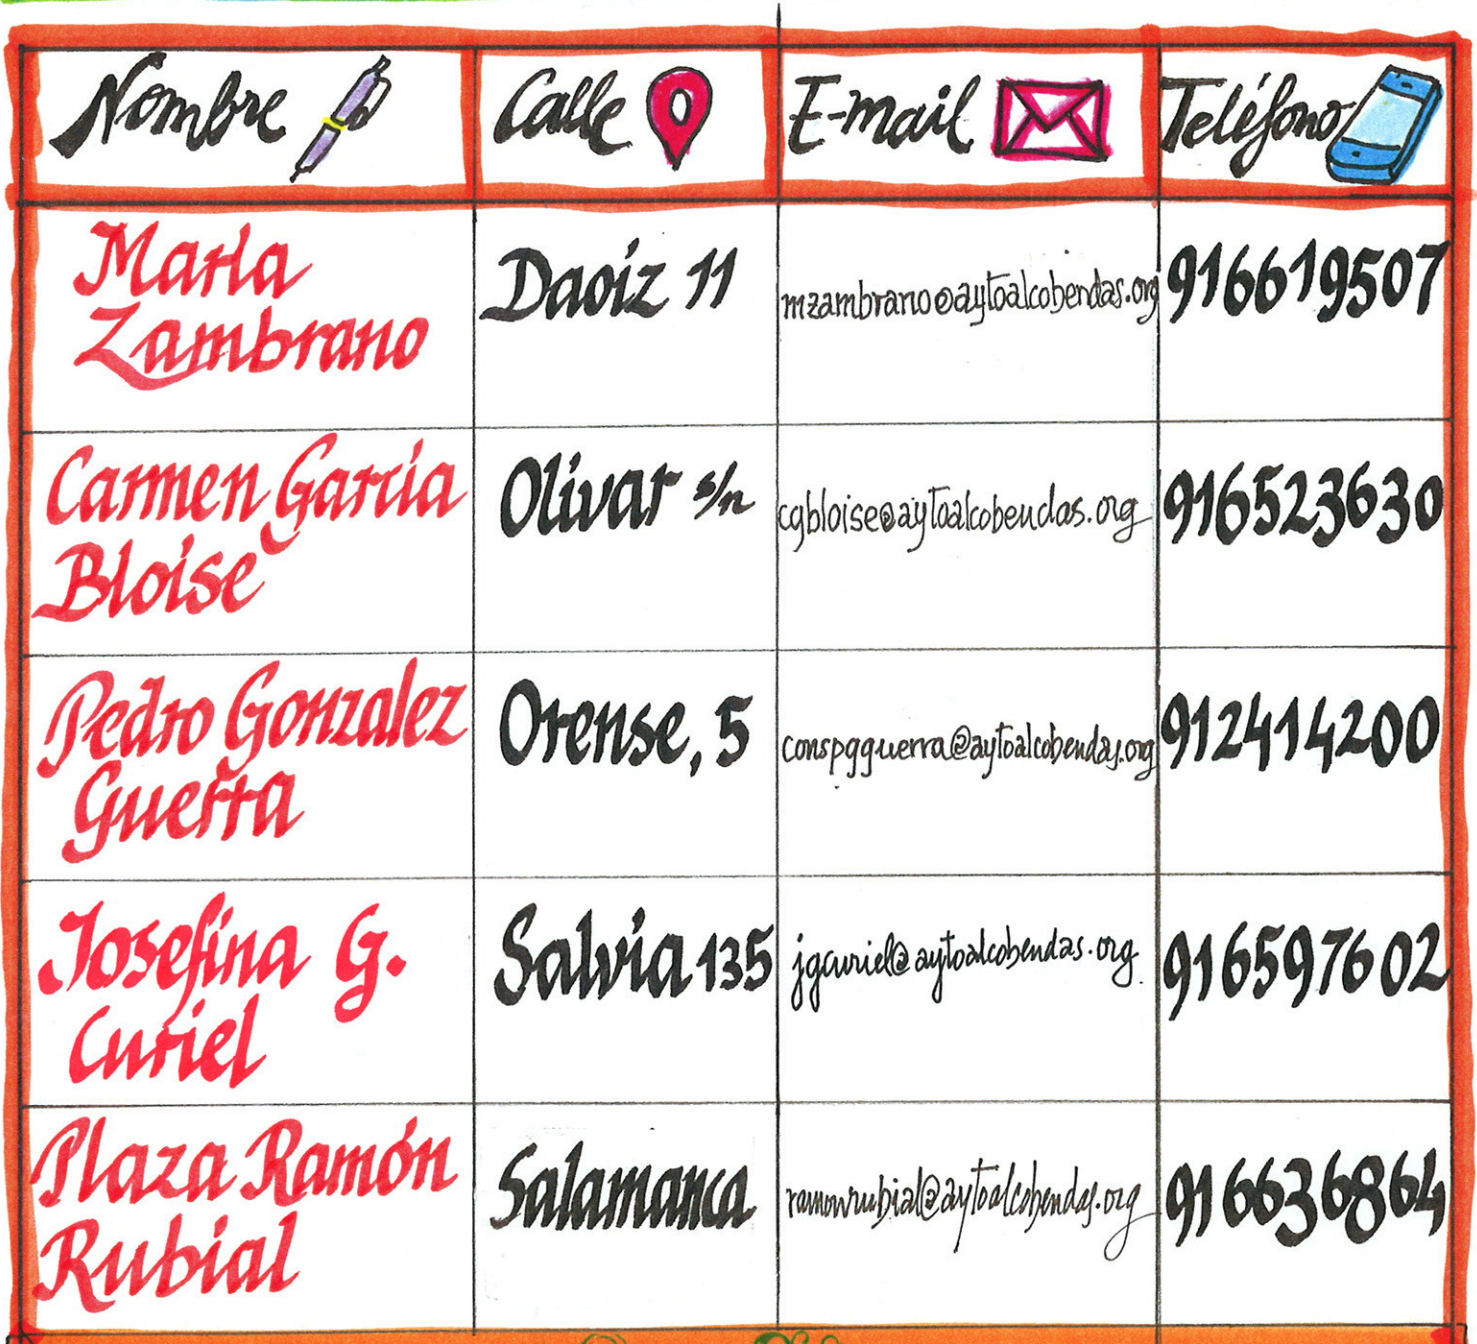 Nombre Calle E-mail Teléfono
María
Zambrano
Daoiz 11
mzambrano@aytoalcobendas.org
916619507
Carmen García
Bloise
Olivar s/n
cgbloise@aytoalcobendas.org
916523630
Pedro Gonzalez
Guerra
Orense, 5
conspgguerra@aytoalcobendas.org
912414200
Josefina G.
Curiel
Salvia 135
jgcuriel@aytoalcobendas.org
916597602
Plaza Ramón
Rubial
Salamanca
ramonrubial@aytoalcobendas.org
916636864